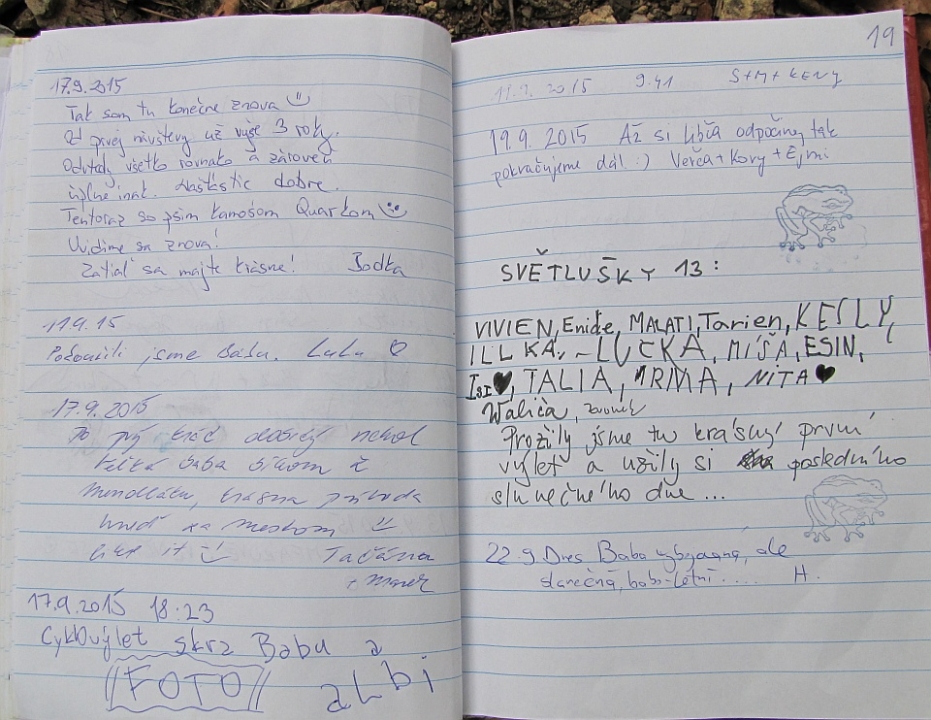 17.9.2015
Tak som tu konečne znova
Od prvej návštevy už vyše 3 roky.
Odvtedy všetko rovnako a zároveň
úplne inak. Našťastie dobre.
Tentoraz so psím kamošom Quarkom
Uvidíme sa znova!
Zatiaľ sa majte krásne! Bodka
17.9.15
Pokořili jsme Babu. Lulu
17.9.2015
To prý dobrý
Baba
krásna príroda
hneď za mestom
like it Taťána
17.9.2015 18:23
Cyklovýlet skrz Babu a
FOTO albi
19
2015 9:41 S+M+KENY
19.9.2015 Až si Ubča odpočinej tak
pokračujeme dál :) Verča+Kory+Ejmi
SVĚTLUŠKY 13:
VIVIEN, Enide, MALATI, Tarien, KESLY,
ILLKA, LUCKA, MIŠA, ESIN,
ISI♥, TALIA, ARMA, NITA♥
Walica,
Prožily jsme tu krásný první
výlet a užily si posledního
slunečného dne ...
22.9. Dnes Baba ale
slunečná, babo-letní.... H.